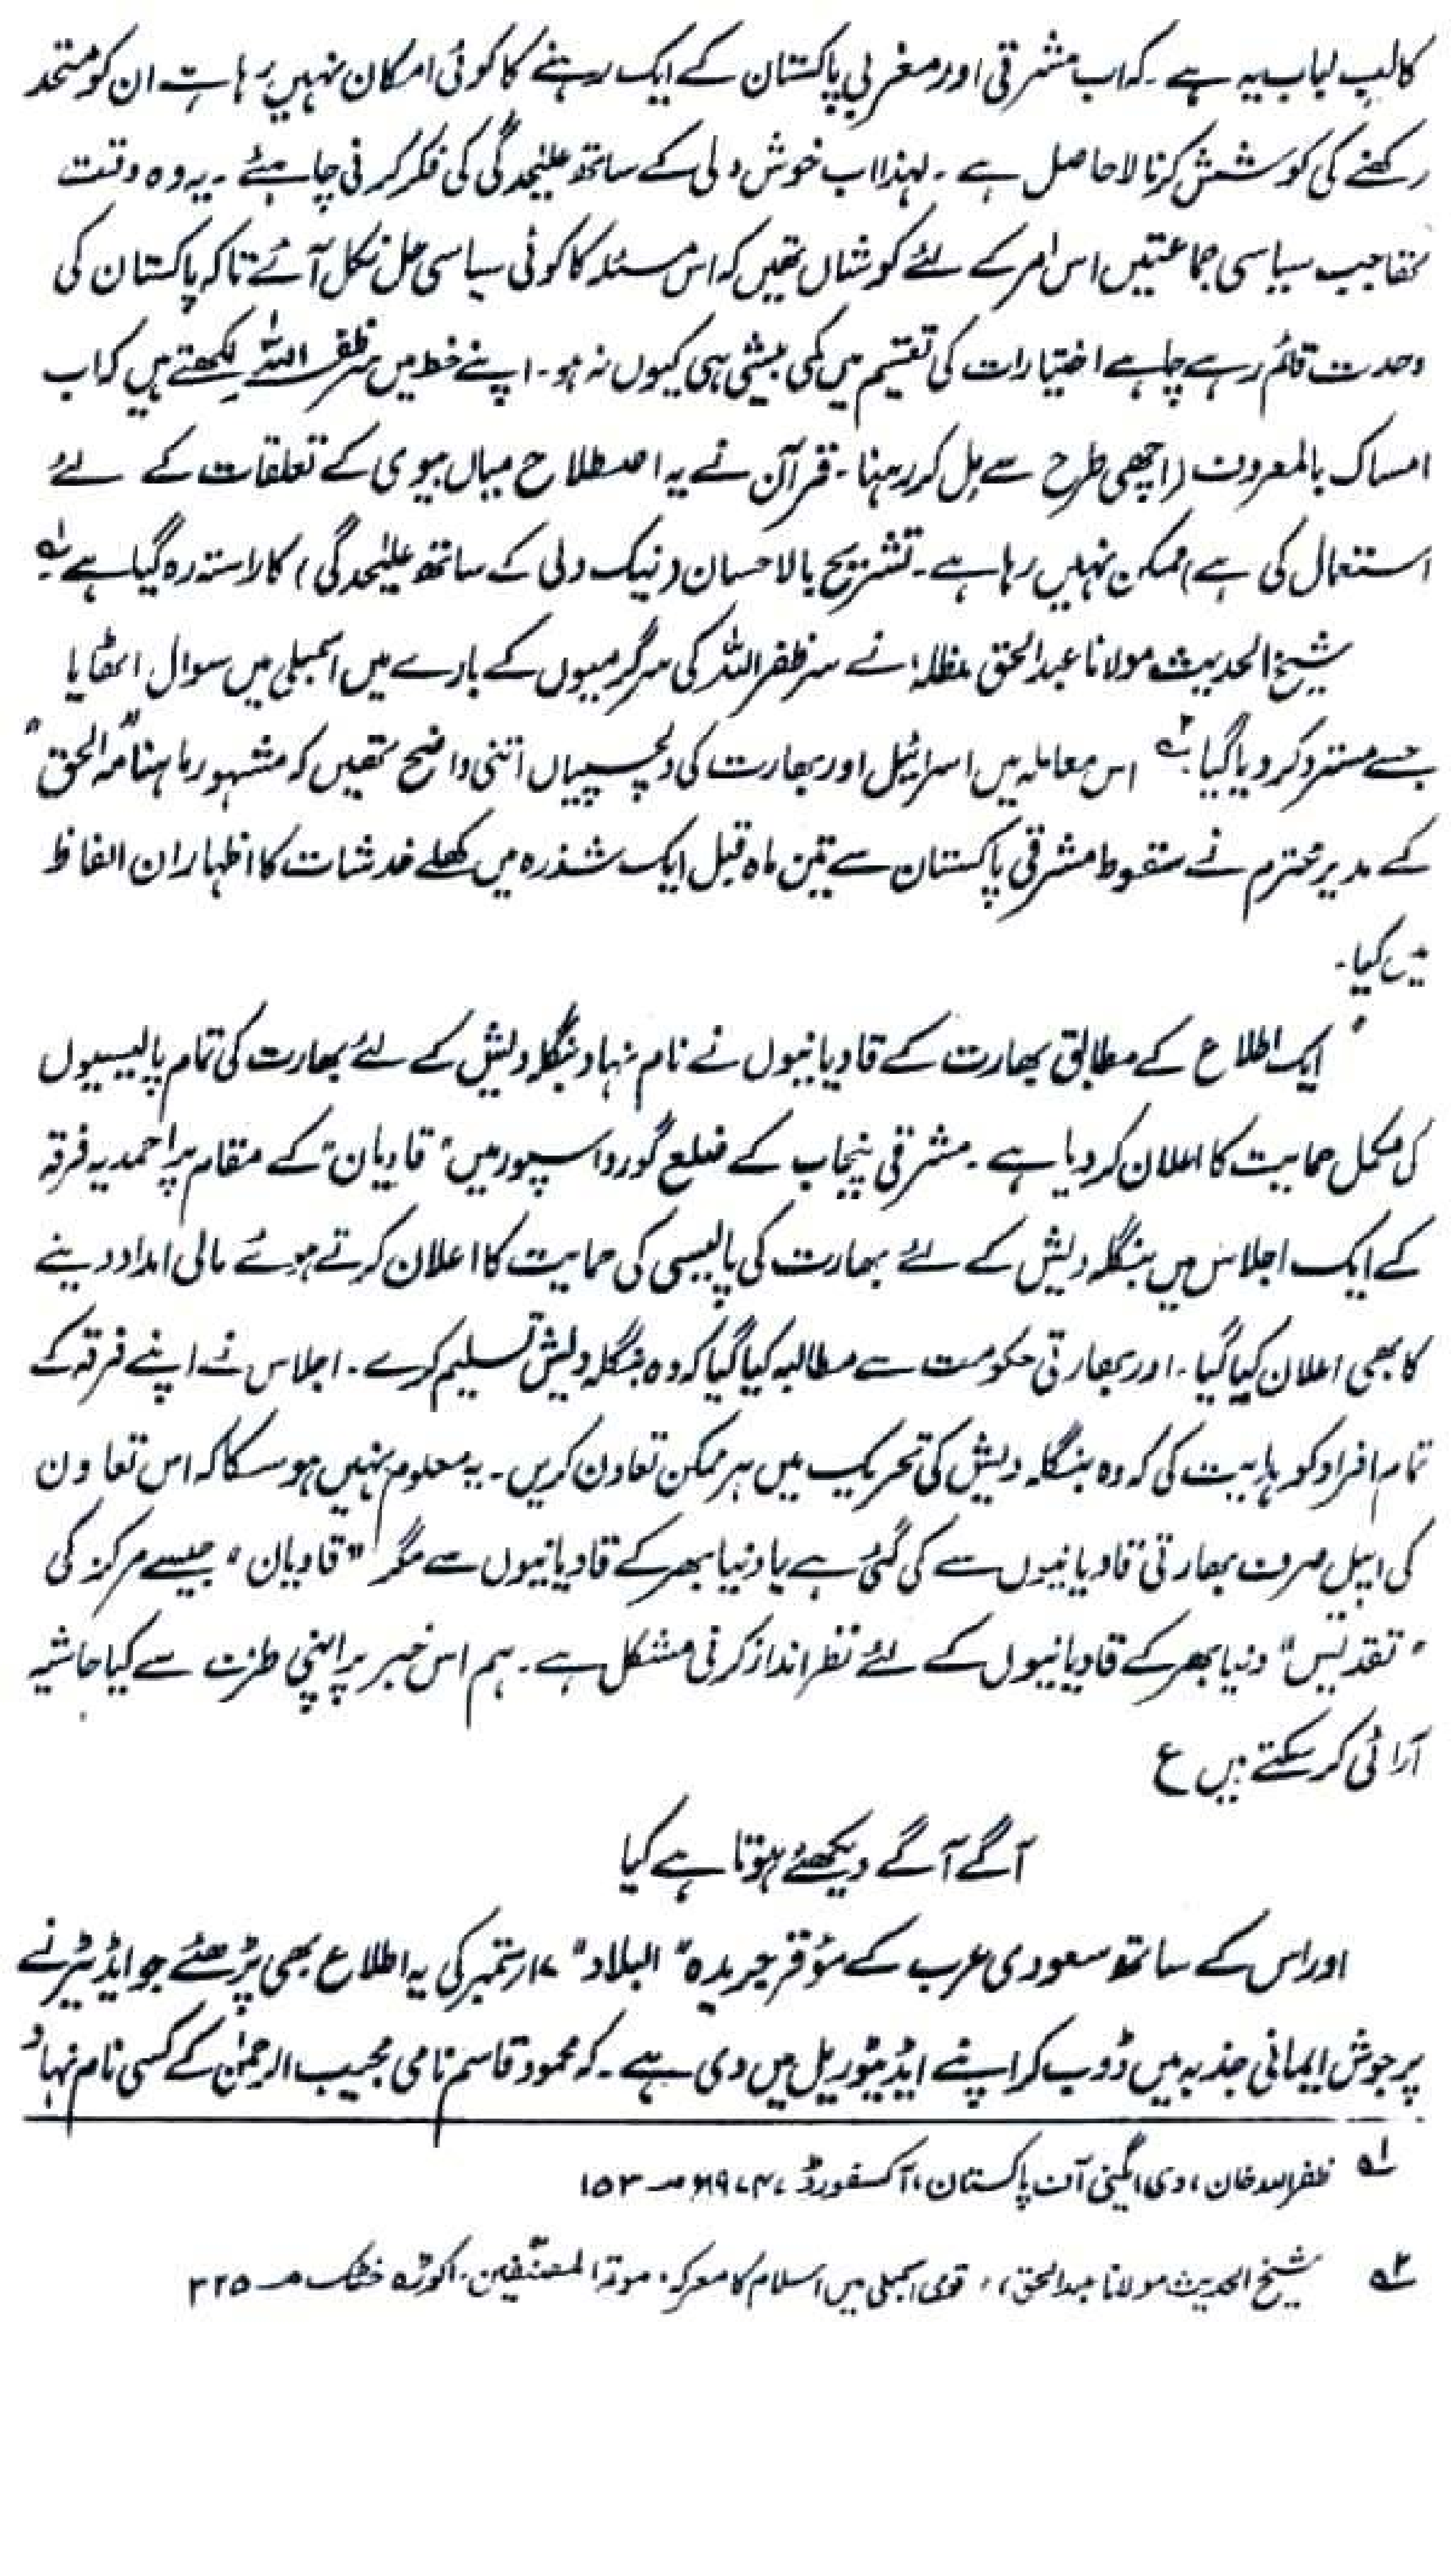 کا لبِ لباب یہ ہے ۔ کہ اب مشرقی اور مغربی پاکستان کے ایک رہنے کا کوئی امکان نہیں رہا ہے ان کو متحد
رکھنے کی کوشش کرنا لاحاصل ہے ۔ لہذا اب خوش دلی کے ساتھ علیٰحدگی کی فکر کرنی چاہیئے ۔ یہ وہ وقت
تھا جب سیاسی جماعتیں اس امر کے لئے کوشاں تھیں کہ اس مسئلہ کا کوئی سیاسی حل نکل آئے تاکہ پاکستان کی
وحدت قائم رہے چاہے اختیارات کی تقسیم میں کمی بیشی ہی کیوں نہ ہو ۔ اپنے خط میں سر ظفر اللہ لکھتے ہیں کہ اب
امساک بالمعروف (اچھی طرح سے مِل کر رہنا ۔ قرآن نے یہ اصطلاح میاں بیوی کے تعلقات کے لئے
استعمال کی ہے) ممکن نہیں رہا ہے ۔ تشریح بالاحسان (نیک دلی کے ساتھ علیٰحدگی) کا راستہ رہ گیا ہے ؎۱
شیخ الحدیث مولانا عبدالحق مدظلہٗ نے سر ظفر اللہ کی سرگرمیوں کے بارے میں اسمبلی میں سوال اٹھایا
جسے مسترد کر دیا گیا ؎۲ اس معاملہ میں اسرائیل اور بھارت کی دلچسپیاں اتنی واضح تھیں کہ مشہور ماہنامہ "الحق"
کے مدیر محترم نے سقوط مشرقی پاکستان سے تین ماہ قبل ایک شذرہ میں کھلے خدشات کا اظہار ان الفاظ
میں کیا ۔
" ایک اطلاع کے مطابق بھارت کے قادیانیوں نے نام نہاد بنگلہ دیش کے لئے بھارت کی تمام پالیسیوں
کی مکمل حمایت کا اعلان کر دیا ہے ۔ مشرقی پنجاب کے ضلع گورداسپور میں "قادیان" کے مقام پر احمدیہ فرقہ
کے ایک اجلاس میں بنگلہ دیش کے لئے بھارت کی پالیسی کی حمایت کا اعلان کرتے ہوئے مالی امداد دینے
کا بھی اعلان کیا گیا ۔ اور بھارتی حکومت سے مطالبہ کیا گیا کہ وہ بنگلہ دیش تسلیم کرے ۔ اجلاس نے اپنے فرقہ کے
تمام افراد کو ہدایت کی کہ وہ بنگلہ دیش کی تحریک میں ہر ممکن تعاون کریں ۔ یہ معلوم نہیں ہو سکا کہ اس تعاون
کی اپیل صرف بھارتی قادیانیوں سے کی گئی ہے یا دنیا بھر کے قادیانیوں سے مگر "قادیان" جیسے مرکز کی
"تقدیس" دنیا بھر کے قادیانیوں کے لئے نظر انداز کرنی مشکل ہے ۔ ہم اس خبر پر اپنی طرف سے کیا حاشیہ
آرائی کر سکتے ہیں ع
آگے آگے دیکھئے ہوتا ہے کیا
اور اس کے ساتھ سعودی عرب کے مؤقر جریدہ "البلاد" ۷ار ستمبر کی یہ اطلاع بھی پڑھئے جو ایڈیٹر نے
پرجوش ایمانی جذبہ میں ڈوب کر اپنے ایڈیٹوریل میں دی ہے ۔ کہ محمود قاسم نامی مجیب الرحمٰن کے کسی نام نہاد
؎۱ ظفر اللہ خان، دی ایگنی آف پاکستان، آکسفورڈ ۱۹۷۴ء صـ ۱۵۳
؎۲ شیخ الحدیث مولانا عبدالحق، قومی اسمبلی میں اسلام کا معرکہ، موتمر المصنّفین، اکوڑہ خٹک صـ ۲۲۵